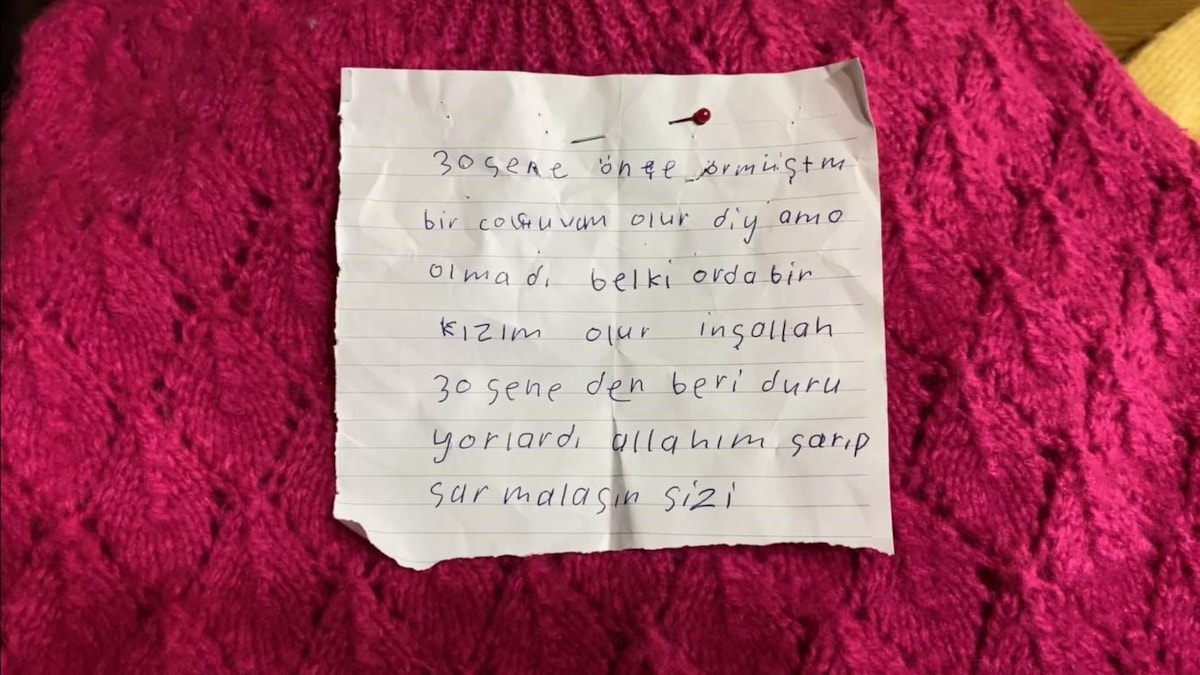 30 şene önçe örmüiştm
bir coşuvum olur diy amo
olma dı belki orda bir
kızım olur inşallah
30 şene den beri duru
yorlardı allahım şarıp
şar malaşın şizi